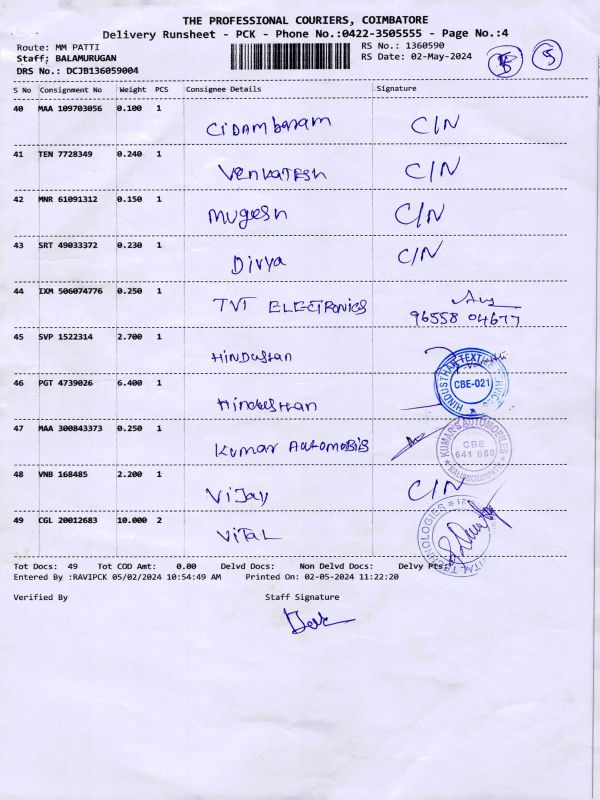 THE PROFESSIONAL COURIERS, COIMBATORE
Delivery Runsheet - PCK - Phone No.:0422-3505555 - Page No.:4
Route: MM PATTI RS No.: 1360590
Staff: BALAMURUGAN RS Date: 02-May-2024
DRS No.: DCJB136059004
S No Consignment No Weight PCS Consignee Details Signature
40 MAA 109703056 0.100 1
Cidambaram C/N
41 TEN 7728349 0.240 1
Venkatesh C/N
42 MNR 61091312 0.150 1
Mugesh C/N
43 SRT 49033372 0.230 1
Divya C/N
44 IXM 506074776 0.250 1
TVT ELECTRONICS
96558 04677
45 SVP 1522314 2.700 1
Hindustan
HINDUSTHAN TEXTILE
CBE-021
46 PGT 4739026 6.400 1
Hindusthan
47 MAA 300843373 0.250 1
Kumar Automobis
KUMAR'S AUTOMOBILES
CBE
641 060
48 VNB 168485 2.200 1
Vijay C/N
49 CGL 20012683 10.000 2
Vital
VITAL TECHNOLOGIES
Tot Docs: 49 Tot COD Amt: 0.00 Delvd Docs: Non Delvd Docs: Delvy Pts:
Entered By :RAVIPCK 05/02/2024 10:54:49 AM Printed On: 02-05-2024 11:22:20
Verified By Staff Signature